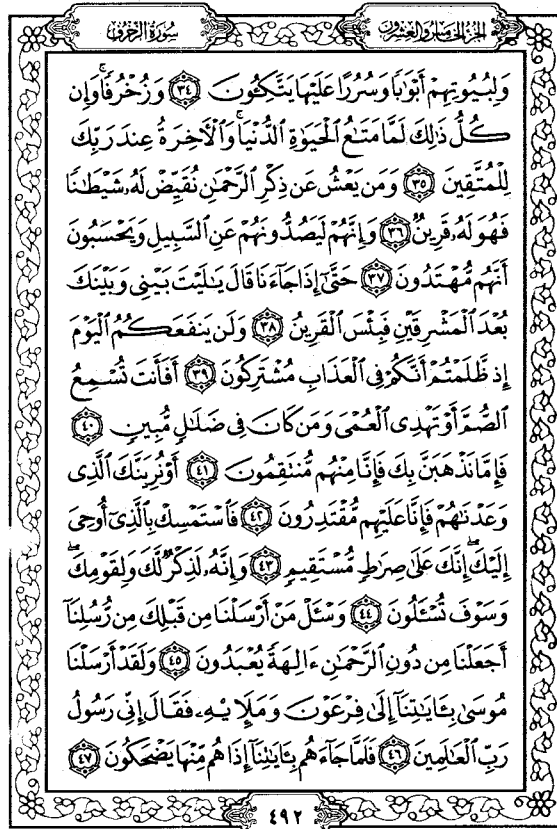 الجزء الخامس والعشرون
سورة الزخرف
وَلِبُيُوتِهِمْ أَبْوَٰبًا وَسُرُرًا عَلَيْهَا يَتَّكِـُٔونَ ٣٤ وَزُخْرُفًا ۚ وَإِن
كُلُّ ذَٰلِكَ لَمَّا مَتَٰعُ ٱلْحَيَوٰةِ ٱلدُّنْيَا ۚ وَٱلْـَٔاخِرَةُ عِندَ رَبِّكَ
لِلْمُتَّقِينَ ٣٥ وَمَن يَعْشُ عَن ذِكْرِ ٱلرَّحْمَٰنِ نُقَيِّضْ لَهُۥ شَيْطَٰنًا
فَهُوَ لَهُۥ قَرِينٌ ٣٦ وَإِنَّهُمْ لَيَصُدُّونَهُمْ عَنِ ٱلسَّبِيلِ وَيَحْسَبُونَ
أَنَّهُم مُّهْتَدُونَ ٣٧ حَتَّىٰٓ إِذَا جَآءَنَا قَالَ يَٰلَيْتَ بَيْنِى وَبَيْنَكَ
بُعْدَ ٱلْمَشْرِقَيْنِ فَبِئْسَ ٱلْقَرِينُ ٣٨ وَلَن يَنفَعَكُمُ ٱلْيَوْمَ
إِذ ظَّلَمْتُمْ أَنَّكُمْ فِى ٱلْعَذَابِ مُشْتَرِكُونَ ٣٩ أَفَأَنتَ تُسْمِعُ
ٱلصُّمَّ أَوْ تَهْدِى ٱلْعُمْىَ وَمَن كَانَ فِى ضَلَٰلٍ مُّبِينٍ ٤٠
فَإِمَّا نَذْهَبَنَّ بِكَ فَإِنَّا مِنْهُم مُّنتَقِمُونَ ٤١ أَوْ نُرِيَنَّكَ ٱلَّذِى
وَعَدْنَٰهُمْ فَإِنَّا عَلَيْهِم مُّقْتَدِرُونَ ٤٢ فَٱسْتَمْسِكْ بِٱلَّذِىٓ أُوحِىَ
إِلَيْكَ ۖ إِنَّكَ عَلَىٰ صِرَٰطٍ مُّسْتَقِيمٍ ٤٣ وَإِنَّهُۥ لَذِكْرٌ لَّكَ وَلِقَوْمِكَ ۖ
وَسَوْفَ تُسْـَٔلُونَ ٤٤ وَسْـَٔلْ مَنْ أَرْسَلْنَا مِن قَبْلِكَ مِن رُّسُلِنَآ
أَجَعَلْنَا مِن دُونِ ٱلرَّحْمَٰنِ ءَالِهَةً يُعْبَدُونَ ٤٥ وَلَقَدْ أَرْسَلْنَا
مُوسَىٰ بِـَٔايَٰتِنَآ إِلَىٰ فِرْعَوْنَ وَمَلَإِيْهِۦ فَقَالَ إِنِّى رَسُولُ
رَبِّ ٱلْعَٰلَمِينَ ٤٦ فَلَمَّا جَآءَهُم بِـَٔايَٰتِنَآ إِذَا هُم مِّنْهَا يَضْحَكُونَ ٤٧
٤٩٢